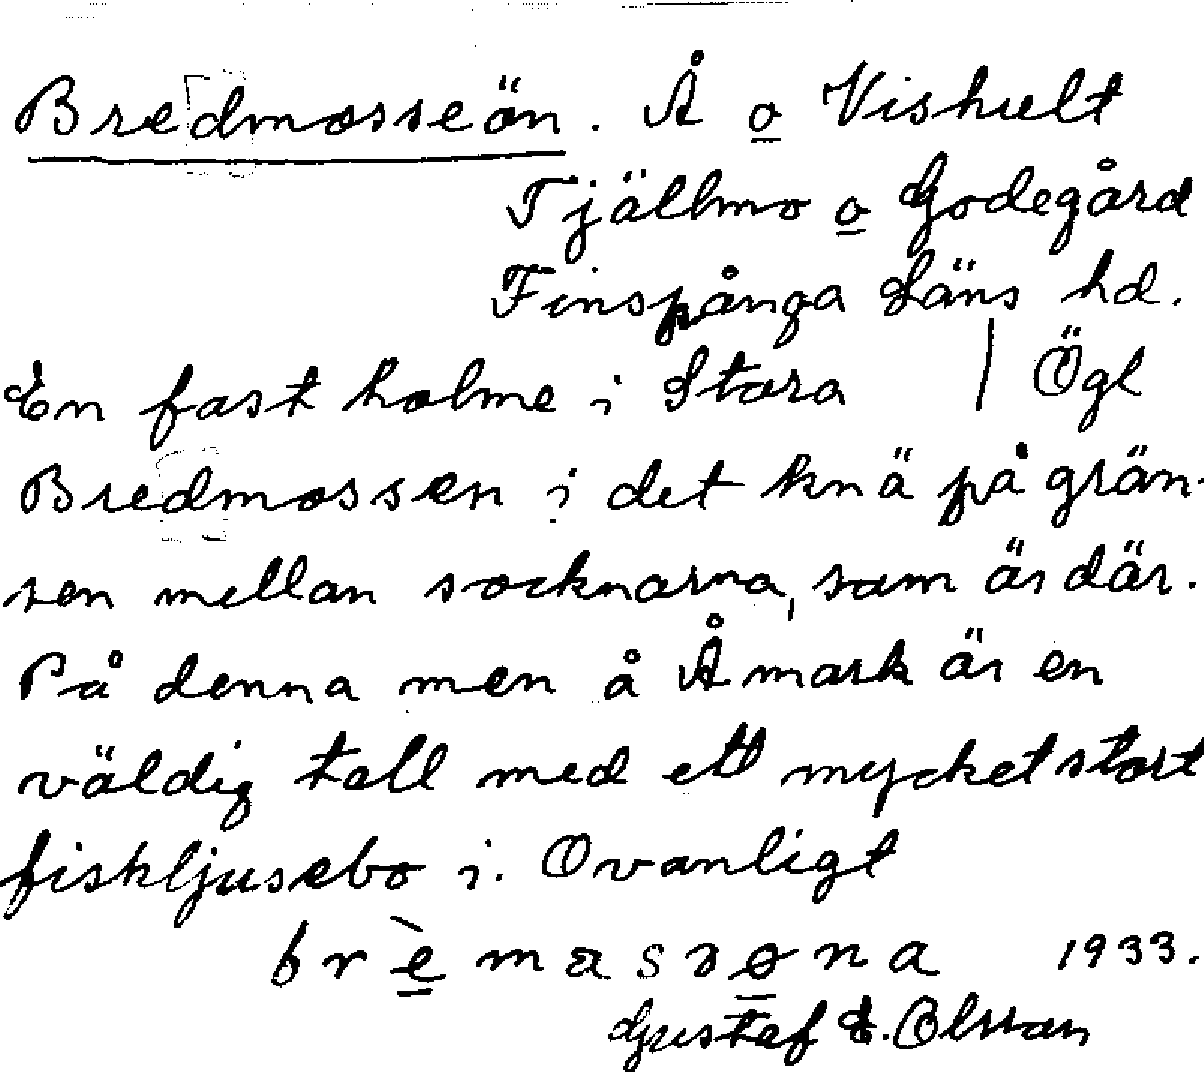 Bredmosseön. Å o Vishult
Tjällmo o Godegård
Finspånga Läns hd.
En fast holme i Stora | Ögl
Bredmossen i det knä på grän-
sen mellan socknarna, som är där.
På denna men å Å mark är en
väldig tall med ett mycket stort
fiskljusebo i. Ovanligt
brèmassøna 1933.
Gustaf E. Olsson